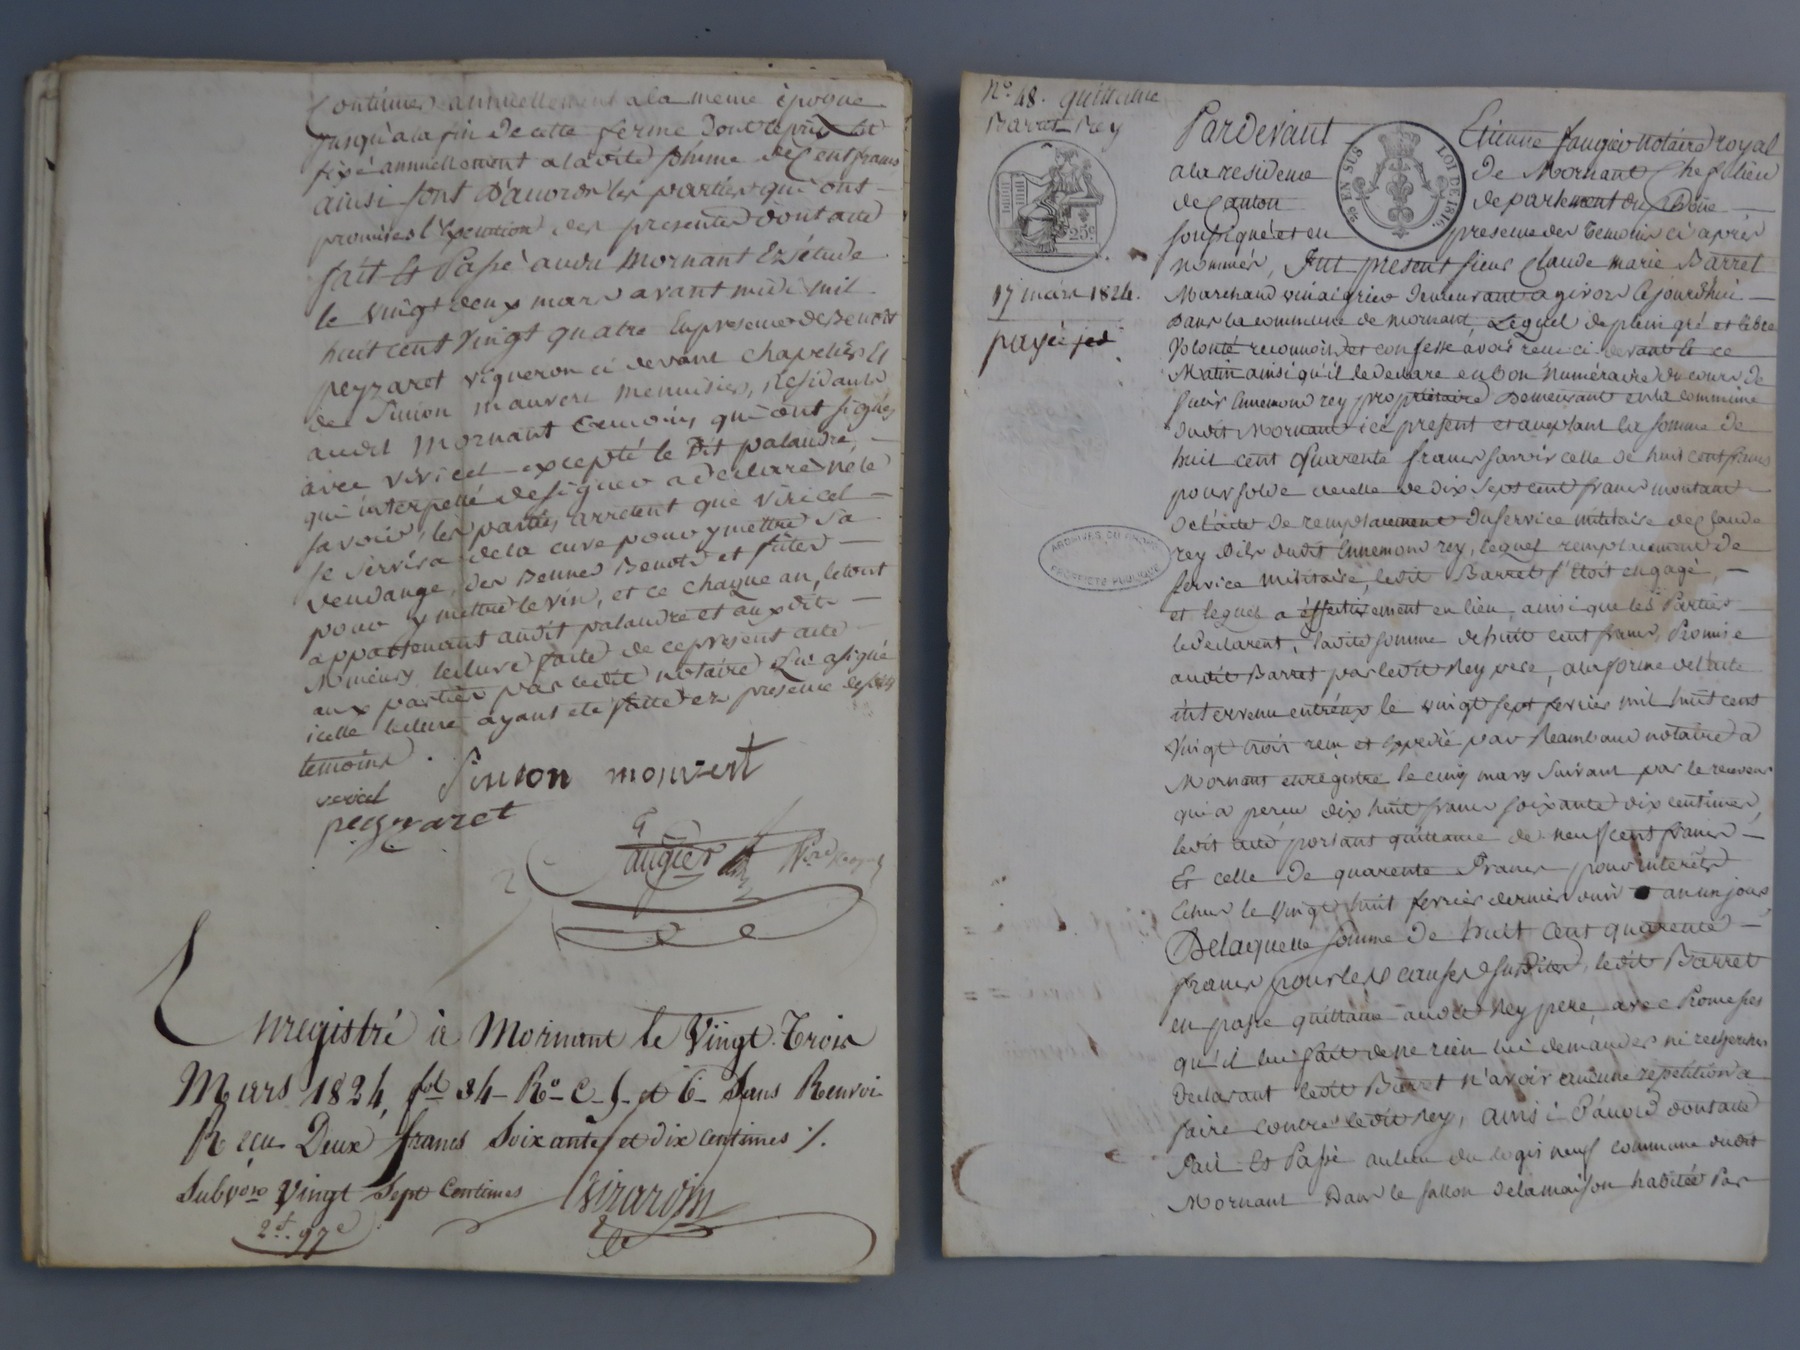 Continuer annuellement a la meme époque
jusqu'a la fin de cette ferme dont le prix est
fixé annuellement a la dite somme de Cent francs
ainsi sont d'accord les parties qui ont
promis l'Execution des presentes dont acte
fait Et Passé audit Mornant Ez étude
le vingt deux mars avant midi mil
huit cent vingt quatre En presence de Benoit
peyzaret vigneron ci devant chapelier Et
de Simon mauvert menuisier, Residants
audit Mornant temoins qui ont signés
avec vericel excepté le dit palandre,
qui interpellé de signer a declaré ne le
savoir, les parties arretent que viricel
se servira de la cuve pour y mettre sa
vendange, des Bennes Benots et futes
pour y mettre le vin, et ce chaque an, le tout
appartenant audit palandre et aux dits
Mineurs lecture faite de ce present acte
aux parties par ledit notaire Qui a signé
icelle lecture ayant eté faite en presence desdits
temoins.
Simon mouvert
vericel
peyzaret
faugier Nre Royal
Enregistré à Mornant le Vingt Trois
Mars 1824, fol 84 Ro C. 5 et 6 Sans Renvoi
Reçu Deux francs Soixante et dix Centimes %.
Subvon Vingt Sept Centimes Girardin
2f. 97c
No. 48. quittance
Barret Rey
17 mars 1824.
payé jed
25c
EN SUS
LOI DE 1816
ARCHIVES DU RHONE
PROPRIETE PUBLIQUE
Pardevant Etienne faugier Notaire royal
a la residence de Mornant Chef lieu
de Canton departement du Rhône
soussigné et en presence des temoins ci après
nommés, Fut present sieur Claude marie Barret
Marchand vinaigrier demeurant a givors Cejourdhui
dans la commune de mornant, Lequel de plein gré et libre
Volonté reconnoit et confesse avoir recu ci devant et ce
Matin ainsi qu'il le declare en bon Numéraire de cours de
sieur Ennemond rey propriétaire demeurant en la commune
dudit Mornant ici present et acceptant la somme de
huit cent Quarente francs savoir celle de huit cent francs
pour solde de celle de dix sept cent francs montant
de l'acte de remplacement du service militaire de Claude
rey fils dudit Ennemond rey, lequel remplacement de
service militaire, ledit Barret s'etoit engagé,
et lequel a effectivement eu lieu, ainsi que les Parties
le declarent, ladite somme de huit cent francs, Promise
audit Barret par ledit Rey pere, a la forme de l'acte
intervenu entréux le vingt sept fevrier mil huit cent
Vingt trois recu et Expedié par Reambaud notaire a
Mornant enregistré le cinq mars suivant par le receveur
qui a percu dix huit francs soixante dix centimes,
ledit acte portant quittance de neuf cent francs
Et celle de quarente francs pour interêts
Echus le vingt huit fevrier dernier an un jours
De laquelle somme de huit cent quarente
francs pour les causes susdites, ledit Barret
en passe quittance audit Rey pere, avec Promesses
qu'il lui fait de ne rien lui demander ni rechercher
Declarant ledit Barret n'avoir aucune repetition a
faire contre ledit Rey, ainsi d'accord dont acte
Fait Et Passé au lieu du logis neuf commune dudit
Mornant Dans le sallon de la maison habitée Par